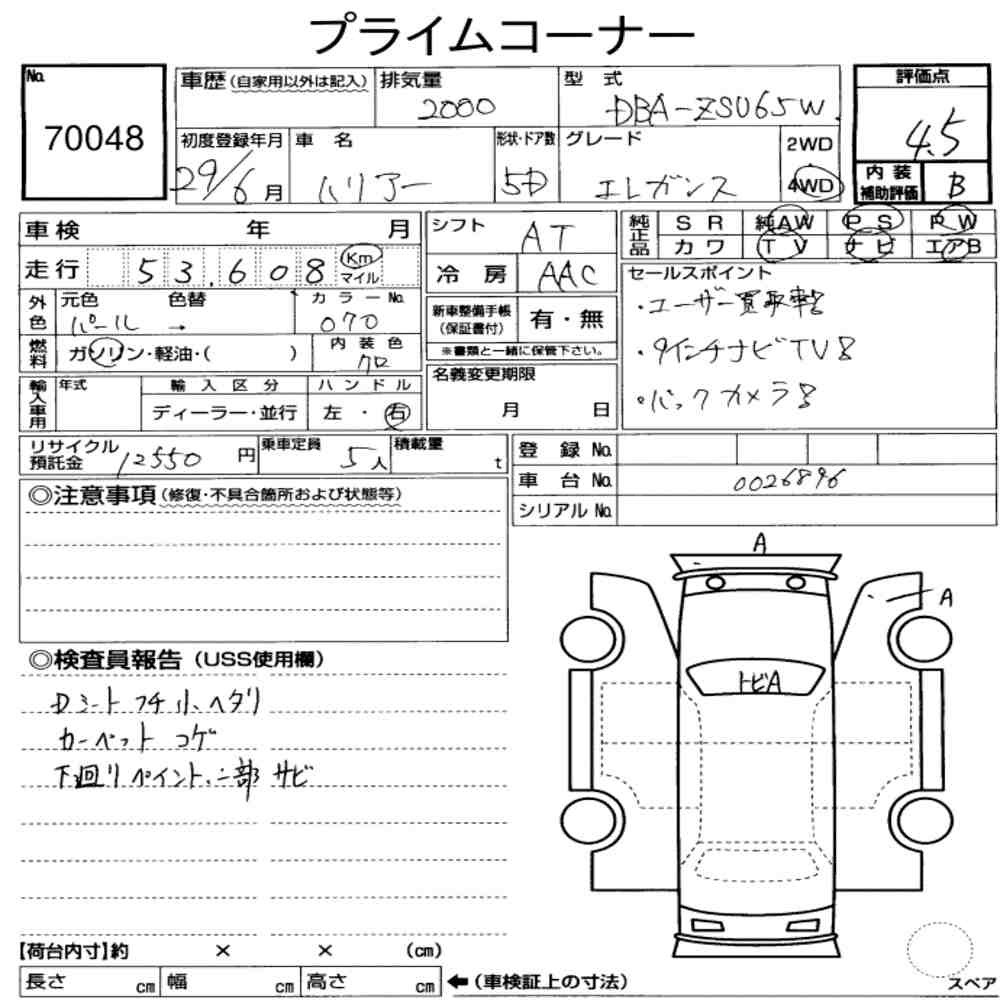 プライムコーナー
No. 70048
車歴 (自家用以外は記入)
排気量 2000
型式 DBA-ZSU65W
評価点 4.5
初度登録年月 29/6月
車名 ハリアー
形状・ドア数 5D
グレード エレガンス
2WD
4WD
内装補助評価 B
車検 年 月
走行 53,608 Km マイル
シフト AT
冷房 AAC
純正品 SR 純AW PS PW
カワ TV ナビ エアB
外色 元色 パール 色替 → カラーNo. 070
燃料 ガソリン・軽油・( )
内装色 クロ
新車整備手帳(保証書付) 有・無
※書類と一緒に保管下さい。
セールスポイント
・ユーザー買取車
・9インチナビTV
・バックカメラ
輸入車用 年式 輸入区分 ハンドル
ディーラー・並行 左・右
名義変更期限
月 日
リサイクル預託金 12550 円
乗車定員 5人
積載量 t
登録No.
車台No. 0026896
シリアルNo.
◎注意事項 (修復・不具合箇所および状態等)
◎検査員報告 (USS使用欄)
Dシート フチ 小ヘタリ
カーペット コゲ
下廻りペイント、一部サビ
A
A
トビA
【荷台内寸】約 × × (cm)
長さ cm 幅 cm 高さ cm ←(車検証上の寸法)
スペア